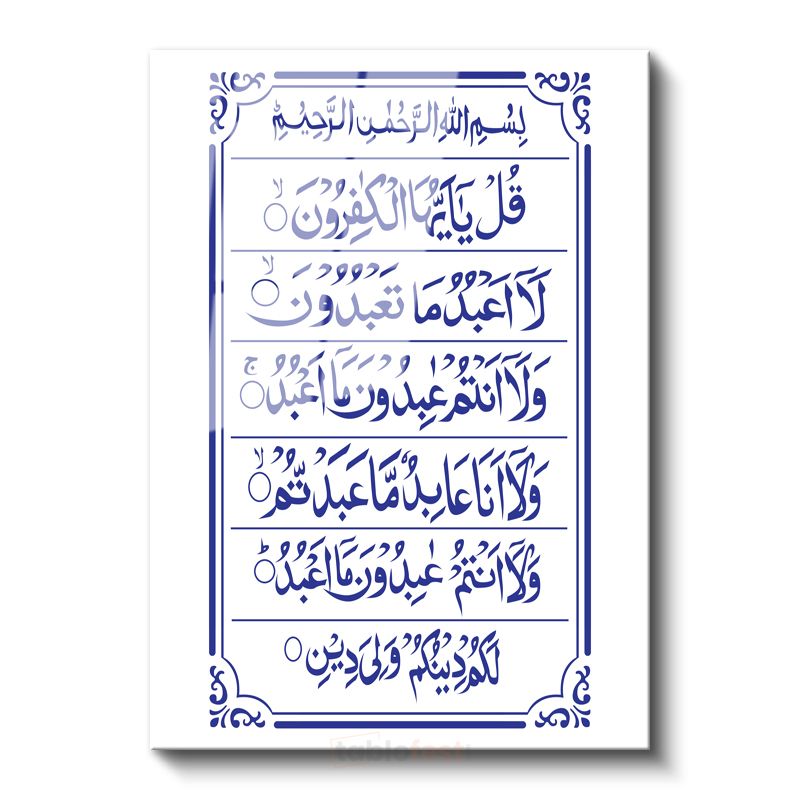 بِسْمِ اللهِ الرَّحْمٰنِ الرَّحِيْمِ
قُلْ يَاَيُّهَا الْكٰفِرُوْنَ ۙ
لَآ اَعْبُدُ مَا تَعْبُدُوْنَ ۙ
وَلَآ اَنْتُمْ عٰبِدُوْنَ مَآ اَعْبُدُ ۚ
وَلَآ اَنَا عَابِدٌ مَّا عَبَدْتُّمْ ۙ
وَلَآ اَنْتُمْ عٰبِدُوْنَ مَآ اَعْبُدُ ؕ
لَكُمْ دِيْنُكُمْ وَلِيَ دِيْنِ
tablofest